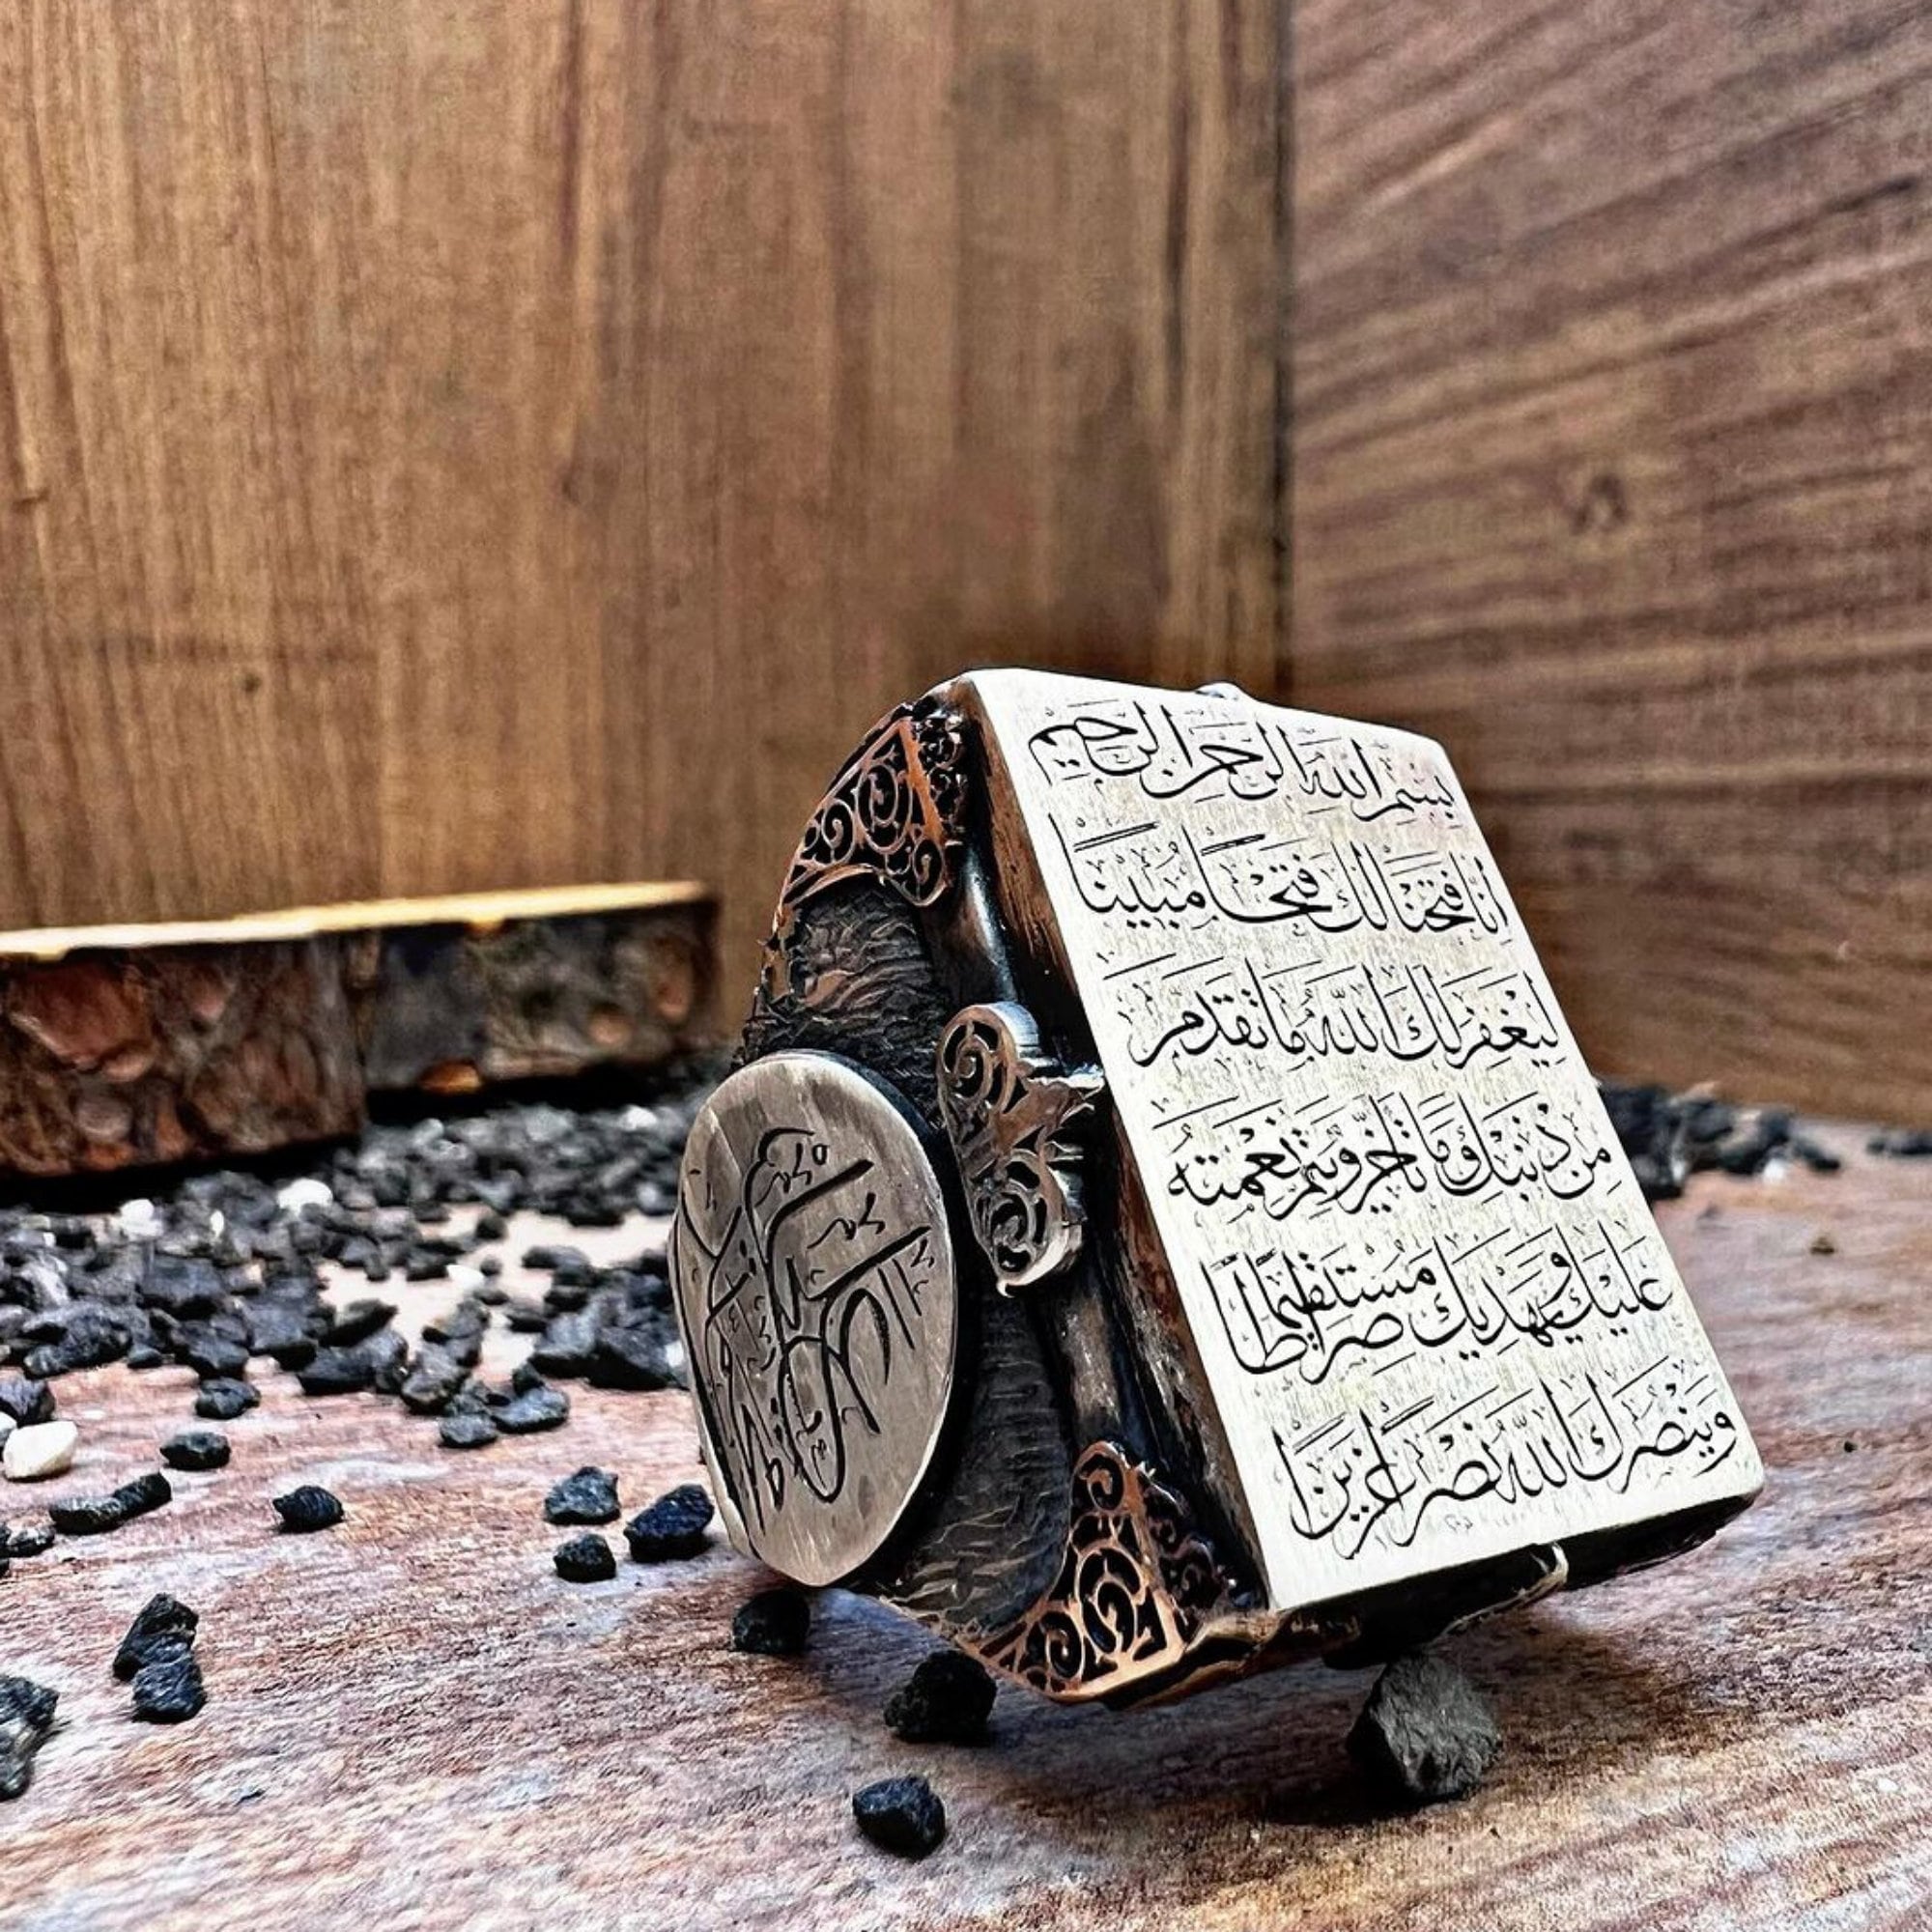 بِسْمِ اللهِ الرَّحْمٰنِ الرَّحِيْمِ
اِنَّا فَتَحْنَا لَكَ فَتْحًا مُبِيْنًا
لِيَغْفِرَ لَكَ اللّٰهُ مَا تَقَدَّمَ
مِنْ ذَنْبِكَ وَمَا تَاَخَّرَ وَيُتِمَّ نِعْمَتَهُ
عَلَيْكَ وَيَهْدِيَكَ صِرَاطًا مُسْتَقِيْمًا
وَيَنْصُرَكَ اللّٰهُ نَصْرًا عَزِيْزًا